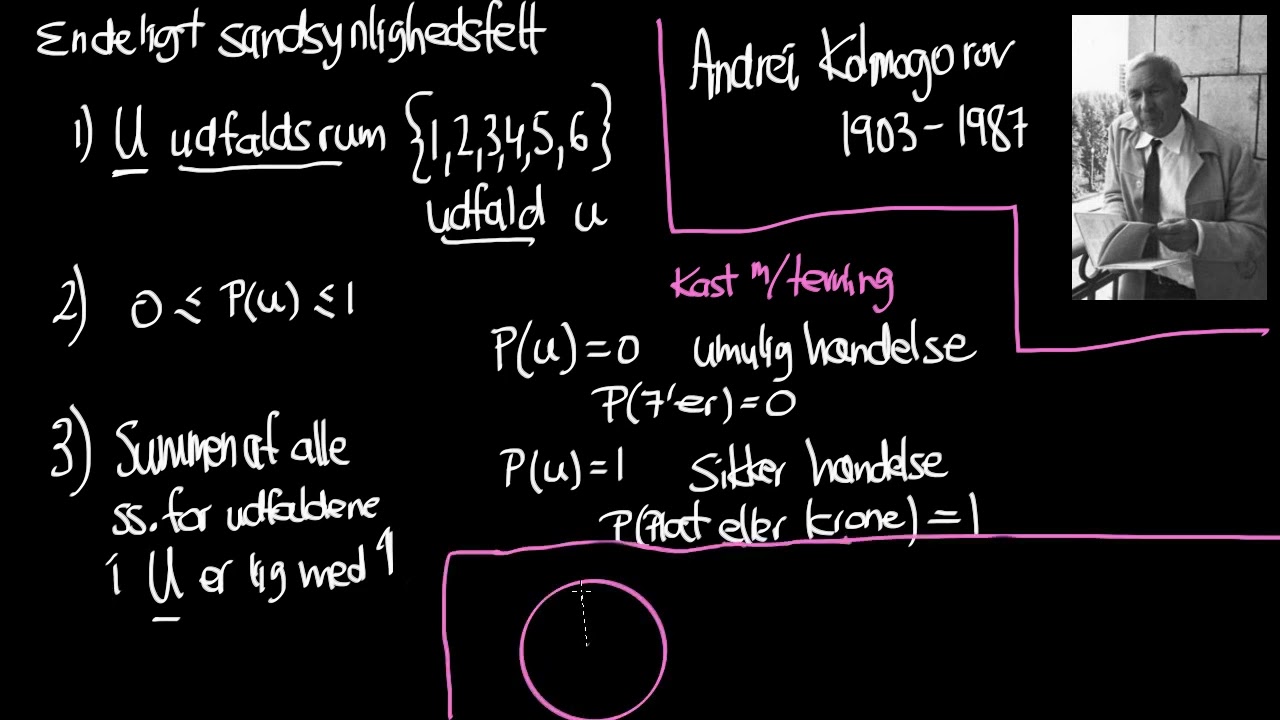 Endeligt sandsynlighedsfelt
1) U udfaldsrum {1,2,3,4,5,6}
udfald u
2) 0 ≤ P(u) ≤ 1
3) Summen af alle
ss. for udfaldene
i U er lig med 1
Andréi Kolmogorov
1903-1987
Kast m/terning
P(u)=0 umulig hændelse
P(7'er)=0
P(u)=1 Sikker hændelse
P(Plat eller krone)=1